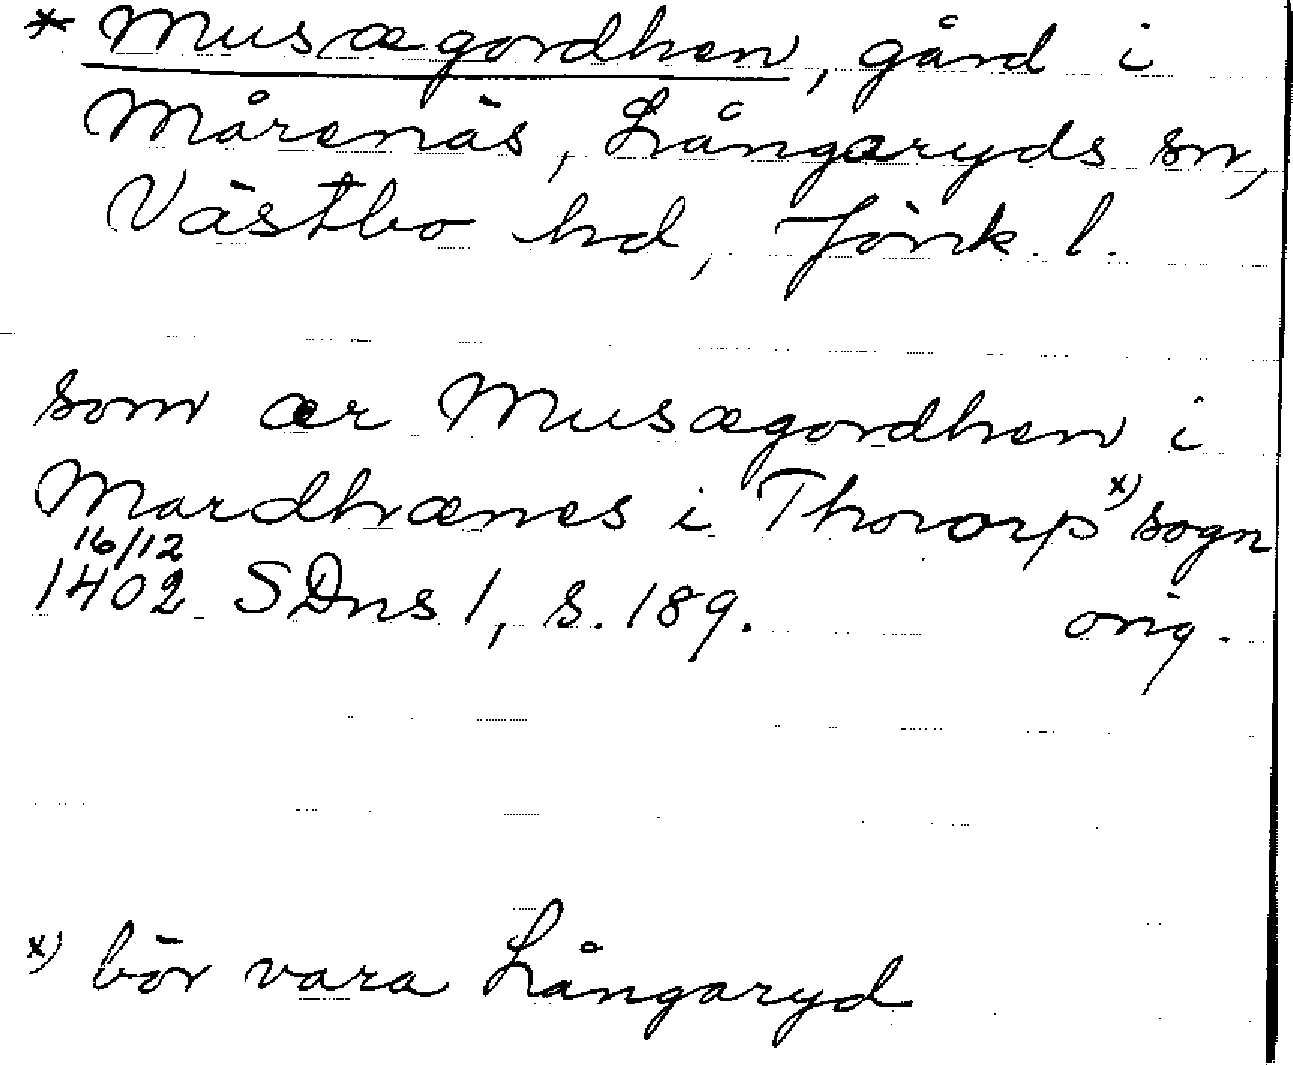 * Musægordhen, gård i
Mårenäs, Långaryds sn,
Västbo hd, Jönk. l.
som ær Musægordhen i
Mardhænes i Thororp x) sogn
16/12
1402 SDns 1, s. 189. orig.
x) bör vara Långaryd